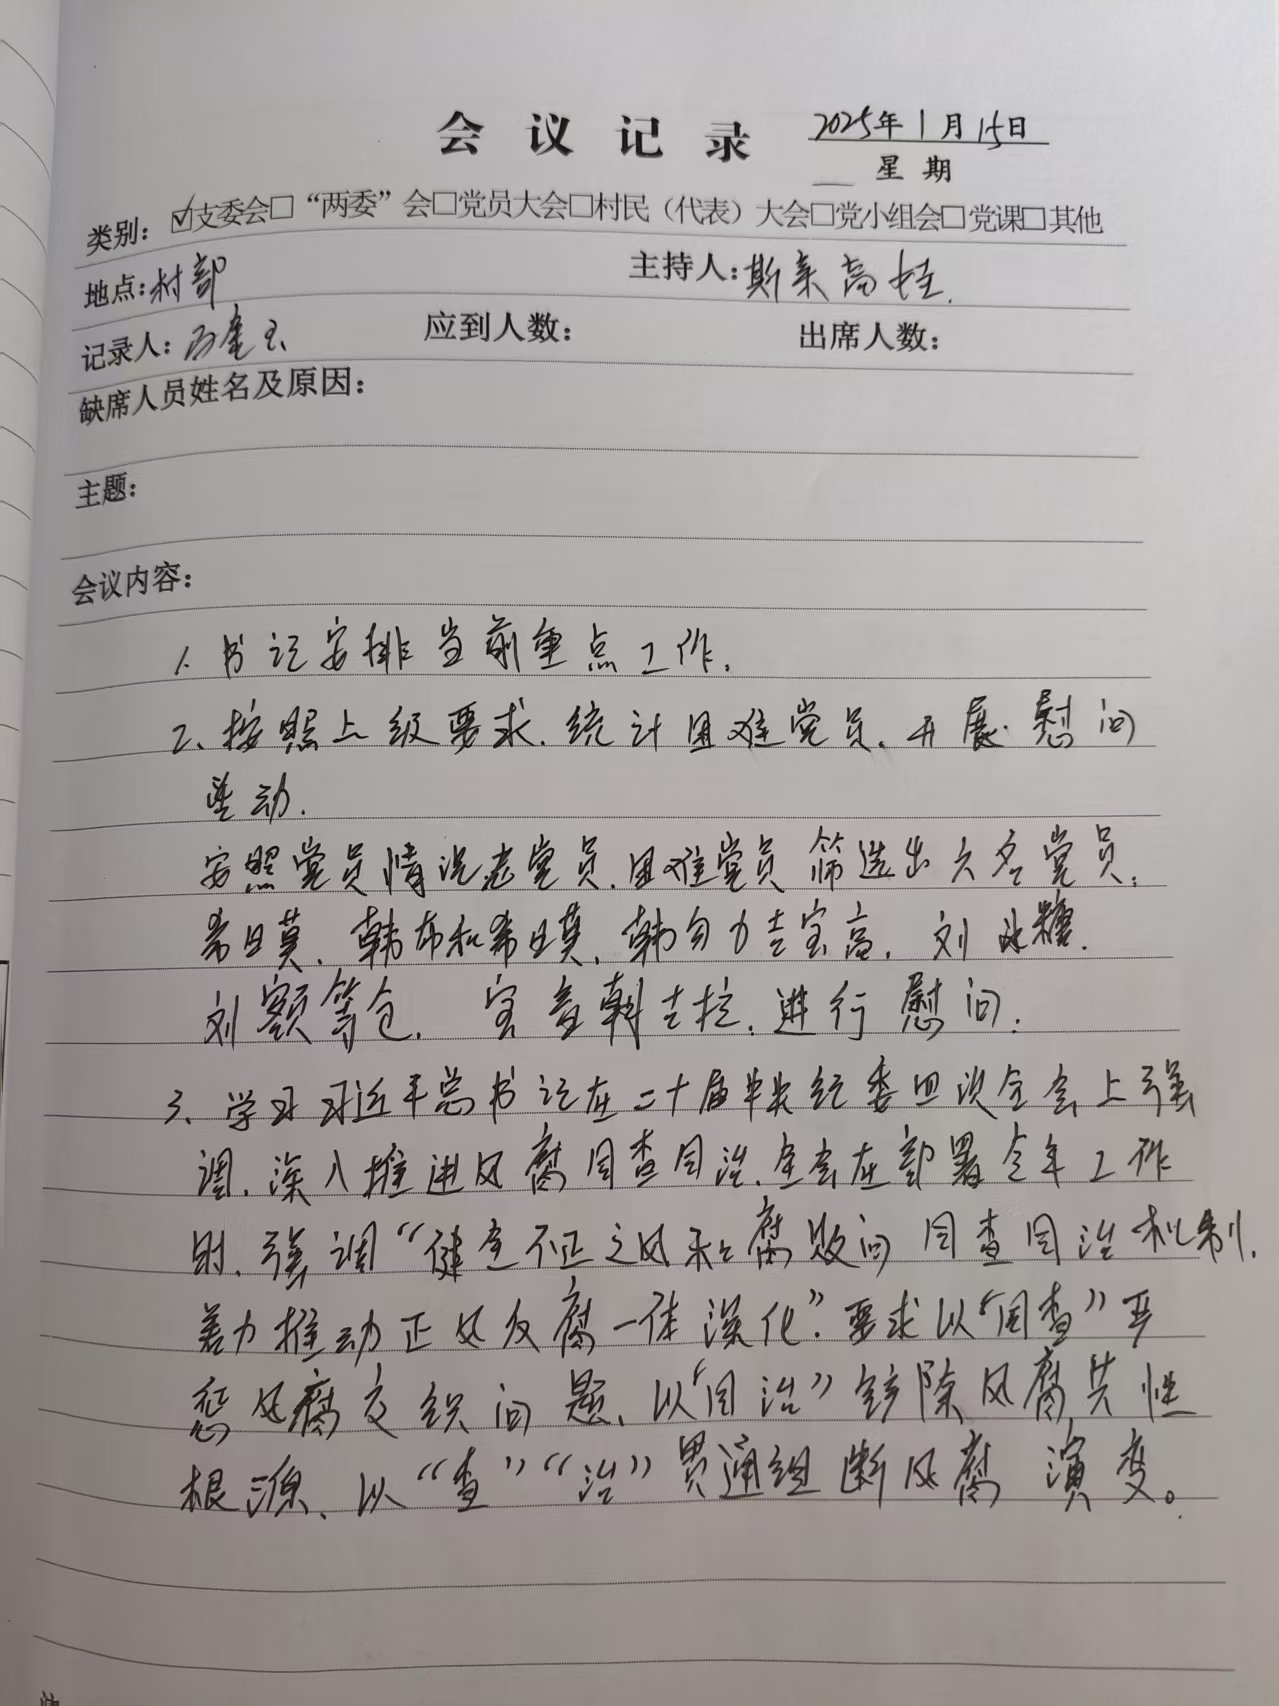 会议记录 2025年1月15日
星期
类别：☑支委会□“两委”会□党员大会□村民（代表）大会□党小组会□党课□其他
地点：村部 主持人：斯来高娃
记录人： 应到人数： 出席人数：
缺席人员姓名及原因：
主题：
会议内容：
1. 书记安排当前重点工作.
2、按照上级要求、统计困难党员、开展慰问
活动.
安照党员情况老党员、困难党员筛选出六名党员：
希日莫、韩布和希日莫、韩勿力吉宝高、刘冰糖.
刘额等仓、宝音朝吉拉、进行慰问.
3、学习习近平总书记在二十届中央纪委四次全会上强
调、深入推进风腐同查同治、全会在部署今年工作
时、强调“健全不正之风和腐败问同查同治机制、
着力推动正风反腐一体深化”. 要求以“同查”严
惩风腐交织问题、以“同治”铲除风腐共性
根源、以“查”“治”贯通组断风腐演变。